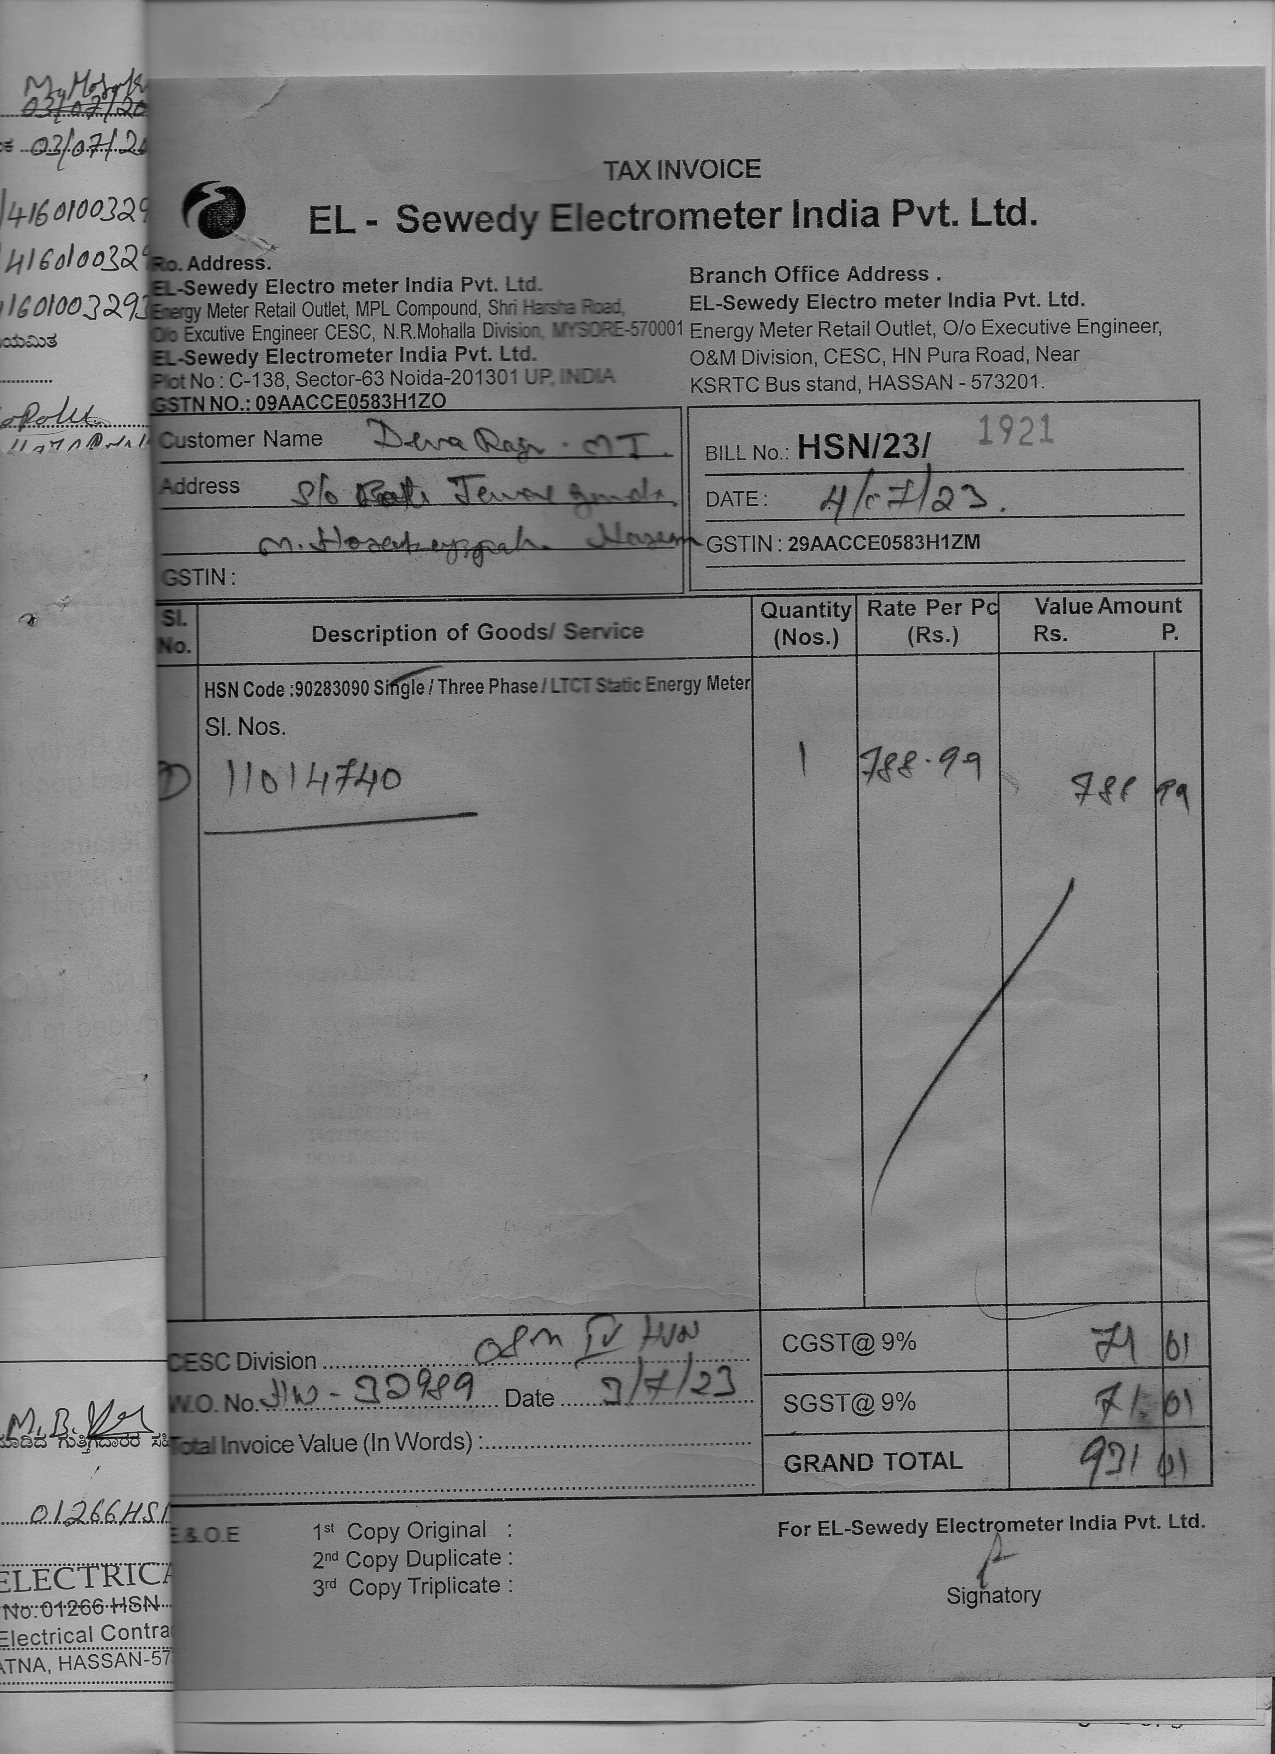 TAX INVOICE
EL - Sewedy Electrometer India Pvt. Ltd.
Ro. Address.
EL-Sewedy Electro meter India Pvt. Ltd.
Energy Meter Retail Outlet, MPL Compound, Shri Harsha Road,
O/o Excutive Engineer CESC, N.R.Mohalla Division, MYSORE-570001
EL-Sewedy Electrometer India Pvt. Ltd.
Plot No : C-138, Sector-63 Noida-201301 UP, INDIA
GSTN NO.: 09AACCE0583H1ZO
Branch Office Address .
EL-Sewedy Electro meter India Pvt. Ltd.
Energy Meter Retail Outlet, O/o Executive Engineer,
O&M Division, CESC, HN Pura Road, Near
KSRTC Bus stand, HASSAN - 573201.
Customer Name
Address S/o
GSTIN :
BILL No.: HSN/23/ 1921
DATE : 4/07/23.
GSTIN : 29AACCE0583H1ZM
Sl. No. Description of Goods/ Service Quantity (Nos.) Rate Per Pc (Rs.) Value Amount Rs. P.
HSN Code :90283090 Single / Three Phase / LTCT Static Energy Meter
Sl. Nos.
11014740 1 788.99 788 99
CESC Division
W.O. No. Date 3/7/23
Total Invoice Value (In Words) :
CGST@ 9% 71 01
SGST@ 9% 71 01
GRAND TOTAL 931 01
E & O.E
1st Copy Original :
2nd Copy Duplicate :
3rd Copy Triplicate :
For EL-Sewedy Electrometer India Pvt. Ltd.
Signatory
03/07/20
03/07/20
4160100329
416010032
1601003293
M.B.
01266HSN
ELECTRICA
No:01266 HSN
Electrical Contra
ATNA, HASSAN-57